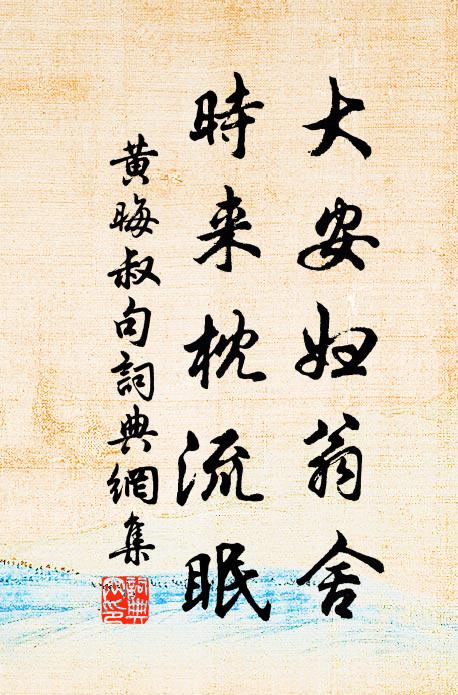 大安妇翁舍
時来枕流眠
黄晦叔句詞典網集
詞典